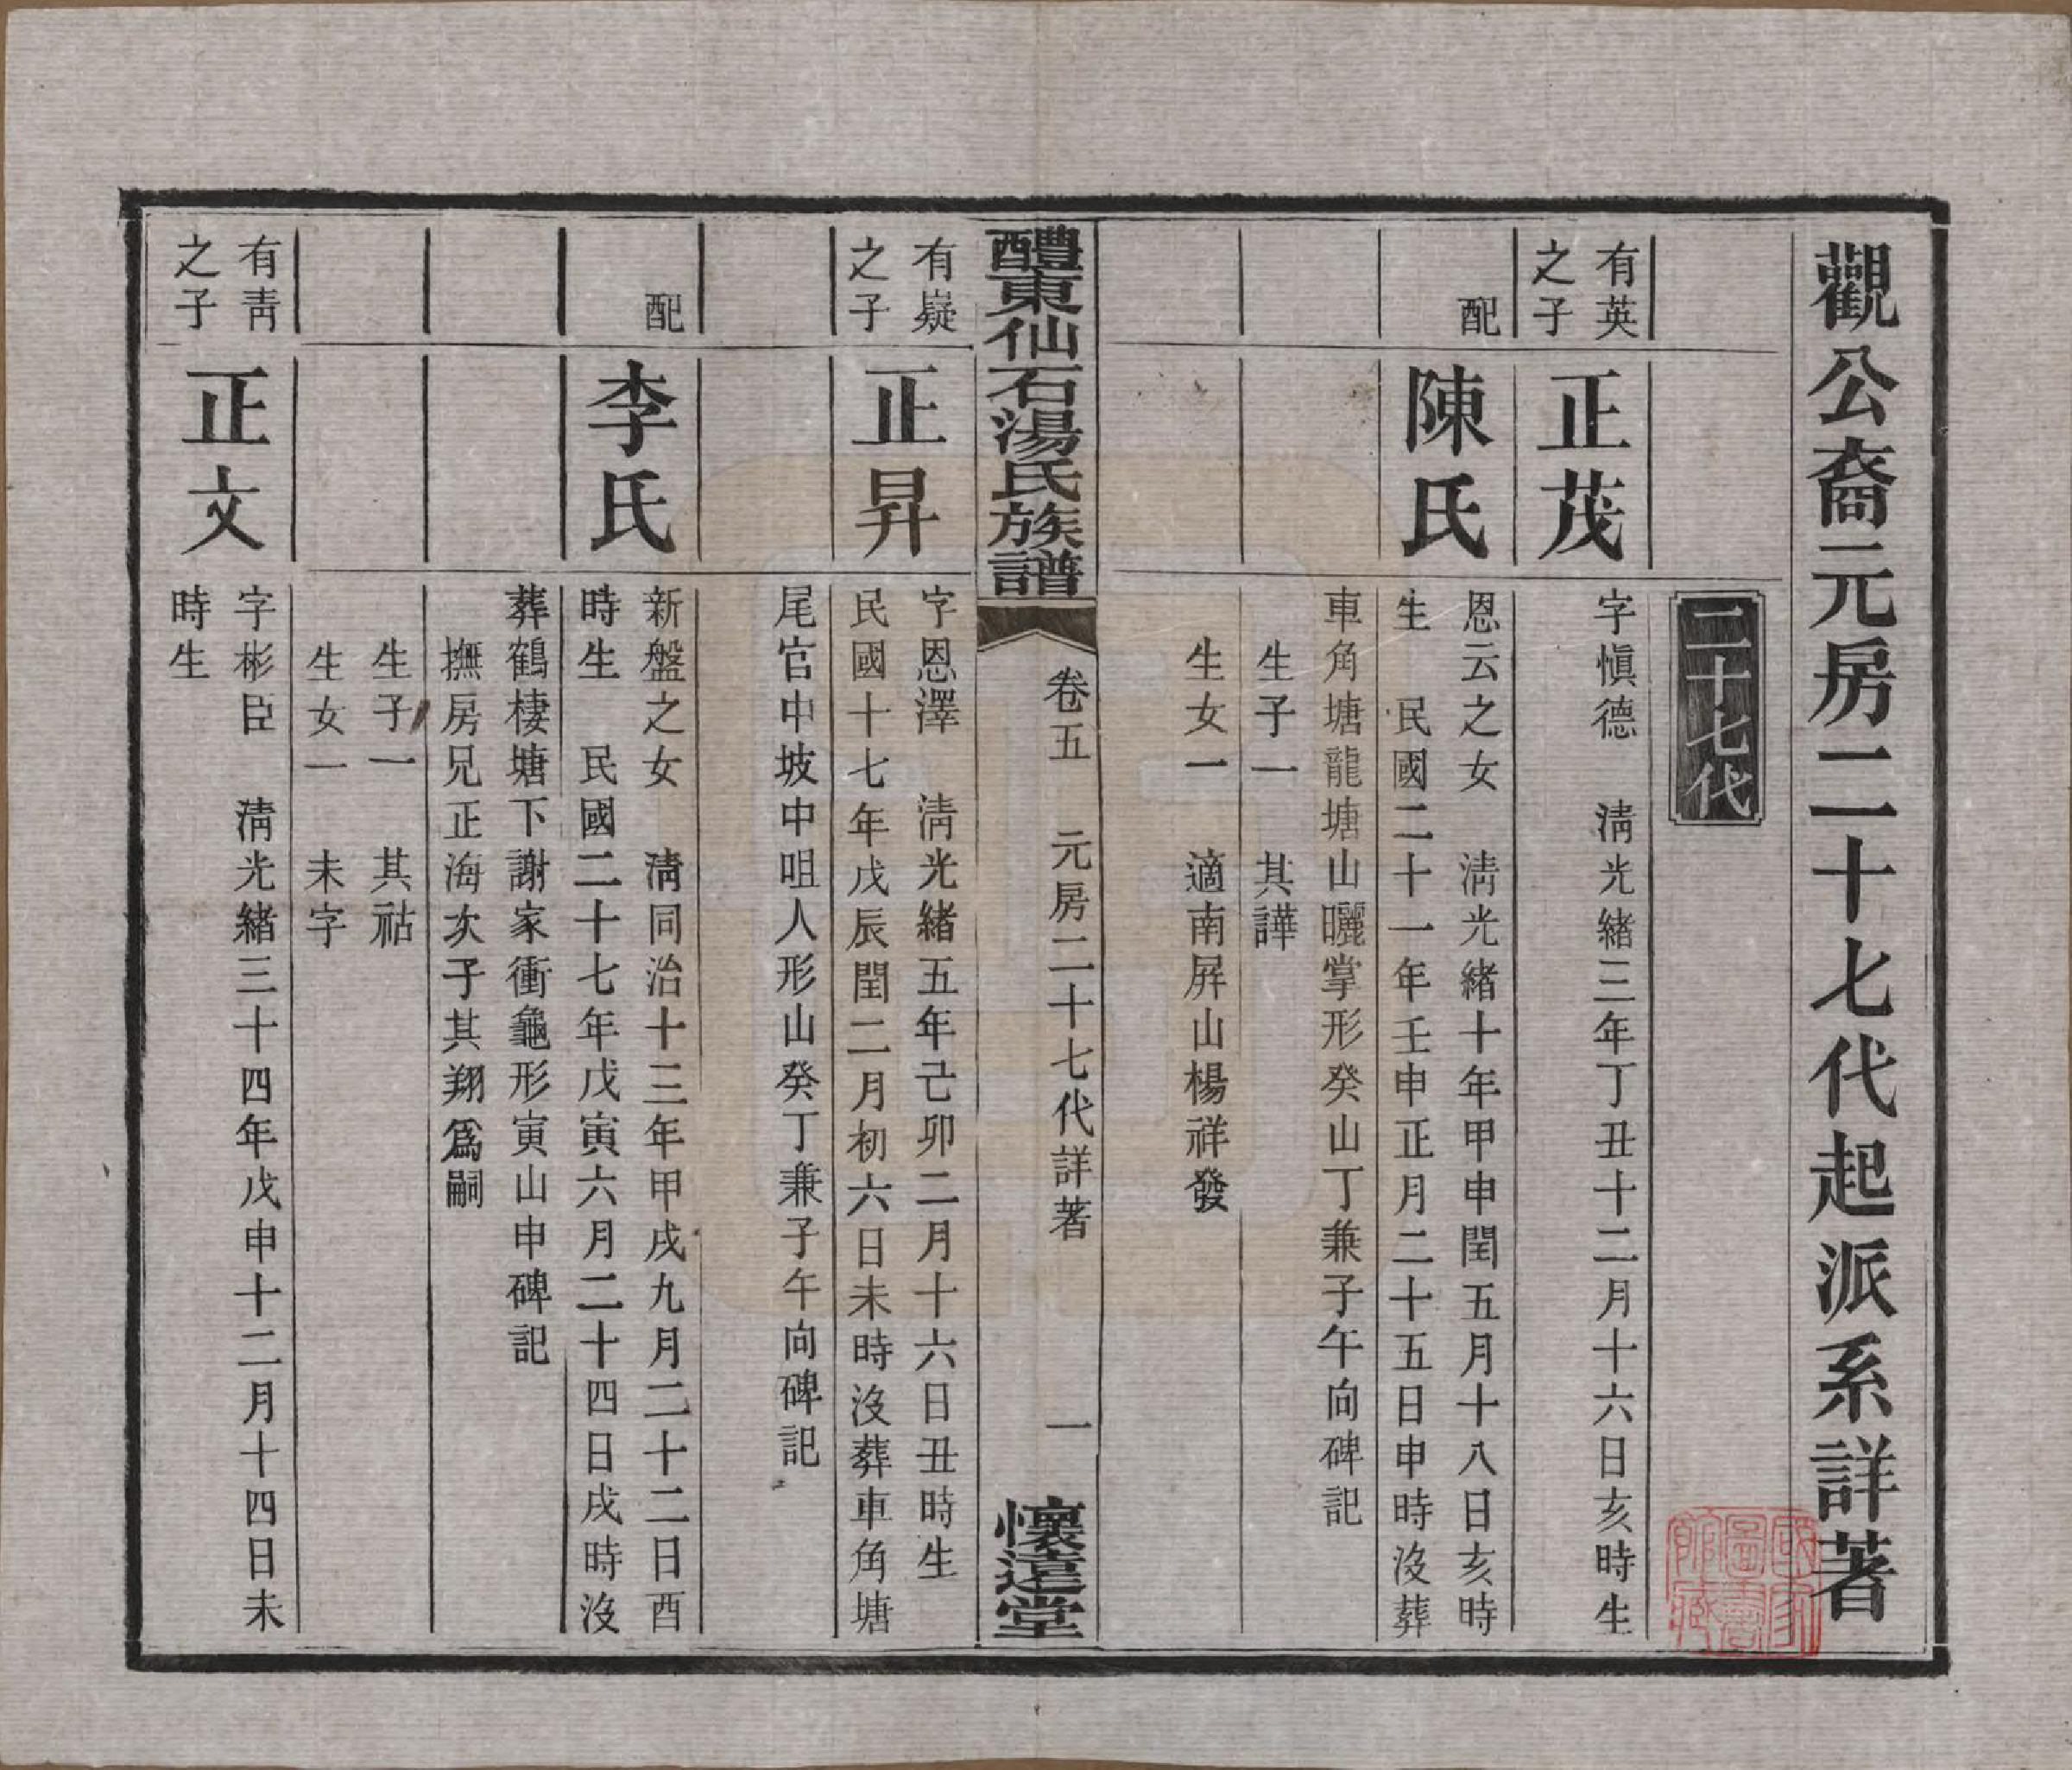 觀公裔元房二十七代起派系詳著
國家圖書館藏
二十七代
有英之子
正茂
字愼德　淸光緒三年丁丑十二月十六日亥時生
配
陳氏
恩云之女　淸光緒十年甲申閏五月十八日亥時
生　民國二十一年壬申正月二十五日申時沒葬
車角塘龍塘山曬掌形癸山丁兼子午向碑記
生子一　其譁
生女一　適南屏山楊祥發
醴東仙石湯氏族譜
卷五　元房二十七代詳著　一
懷遠堂
有嶷之子
正昇
字恩澤　淸光緒五年己卯二月十六日丑時生
民國十七年戊辰閏二月初六日未時沒葬車角塘
尾官中坡中咀人形山癸丁兼子午向碑記
配
李氏
新盤之女　淸同治十三年甲戌九月二十二日酉
時生　民國二十七年戊寅六月二十四日戌時沒
葬鶴棲塘下謝家衝龜形寅山申碑記
撫房兄正海次子其翔爲嗣
生子一　其祜
生女一　未字
有靑之子
正文
字彬臣　淸光緒三十四年戊申十二月十四日未
時生